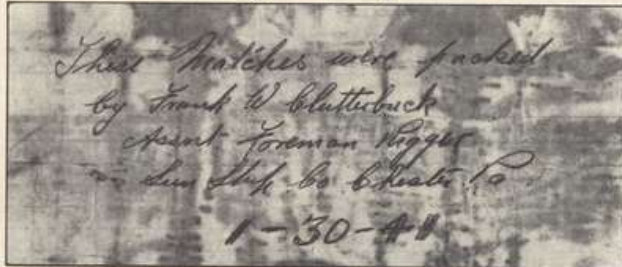 These Matches were packed
by Frank W Clutterbuck
Assist Foreman Rigger
Sun Ship Co Chester Pa
1-30-41